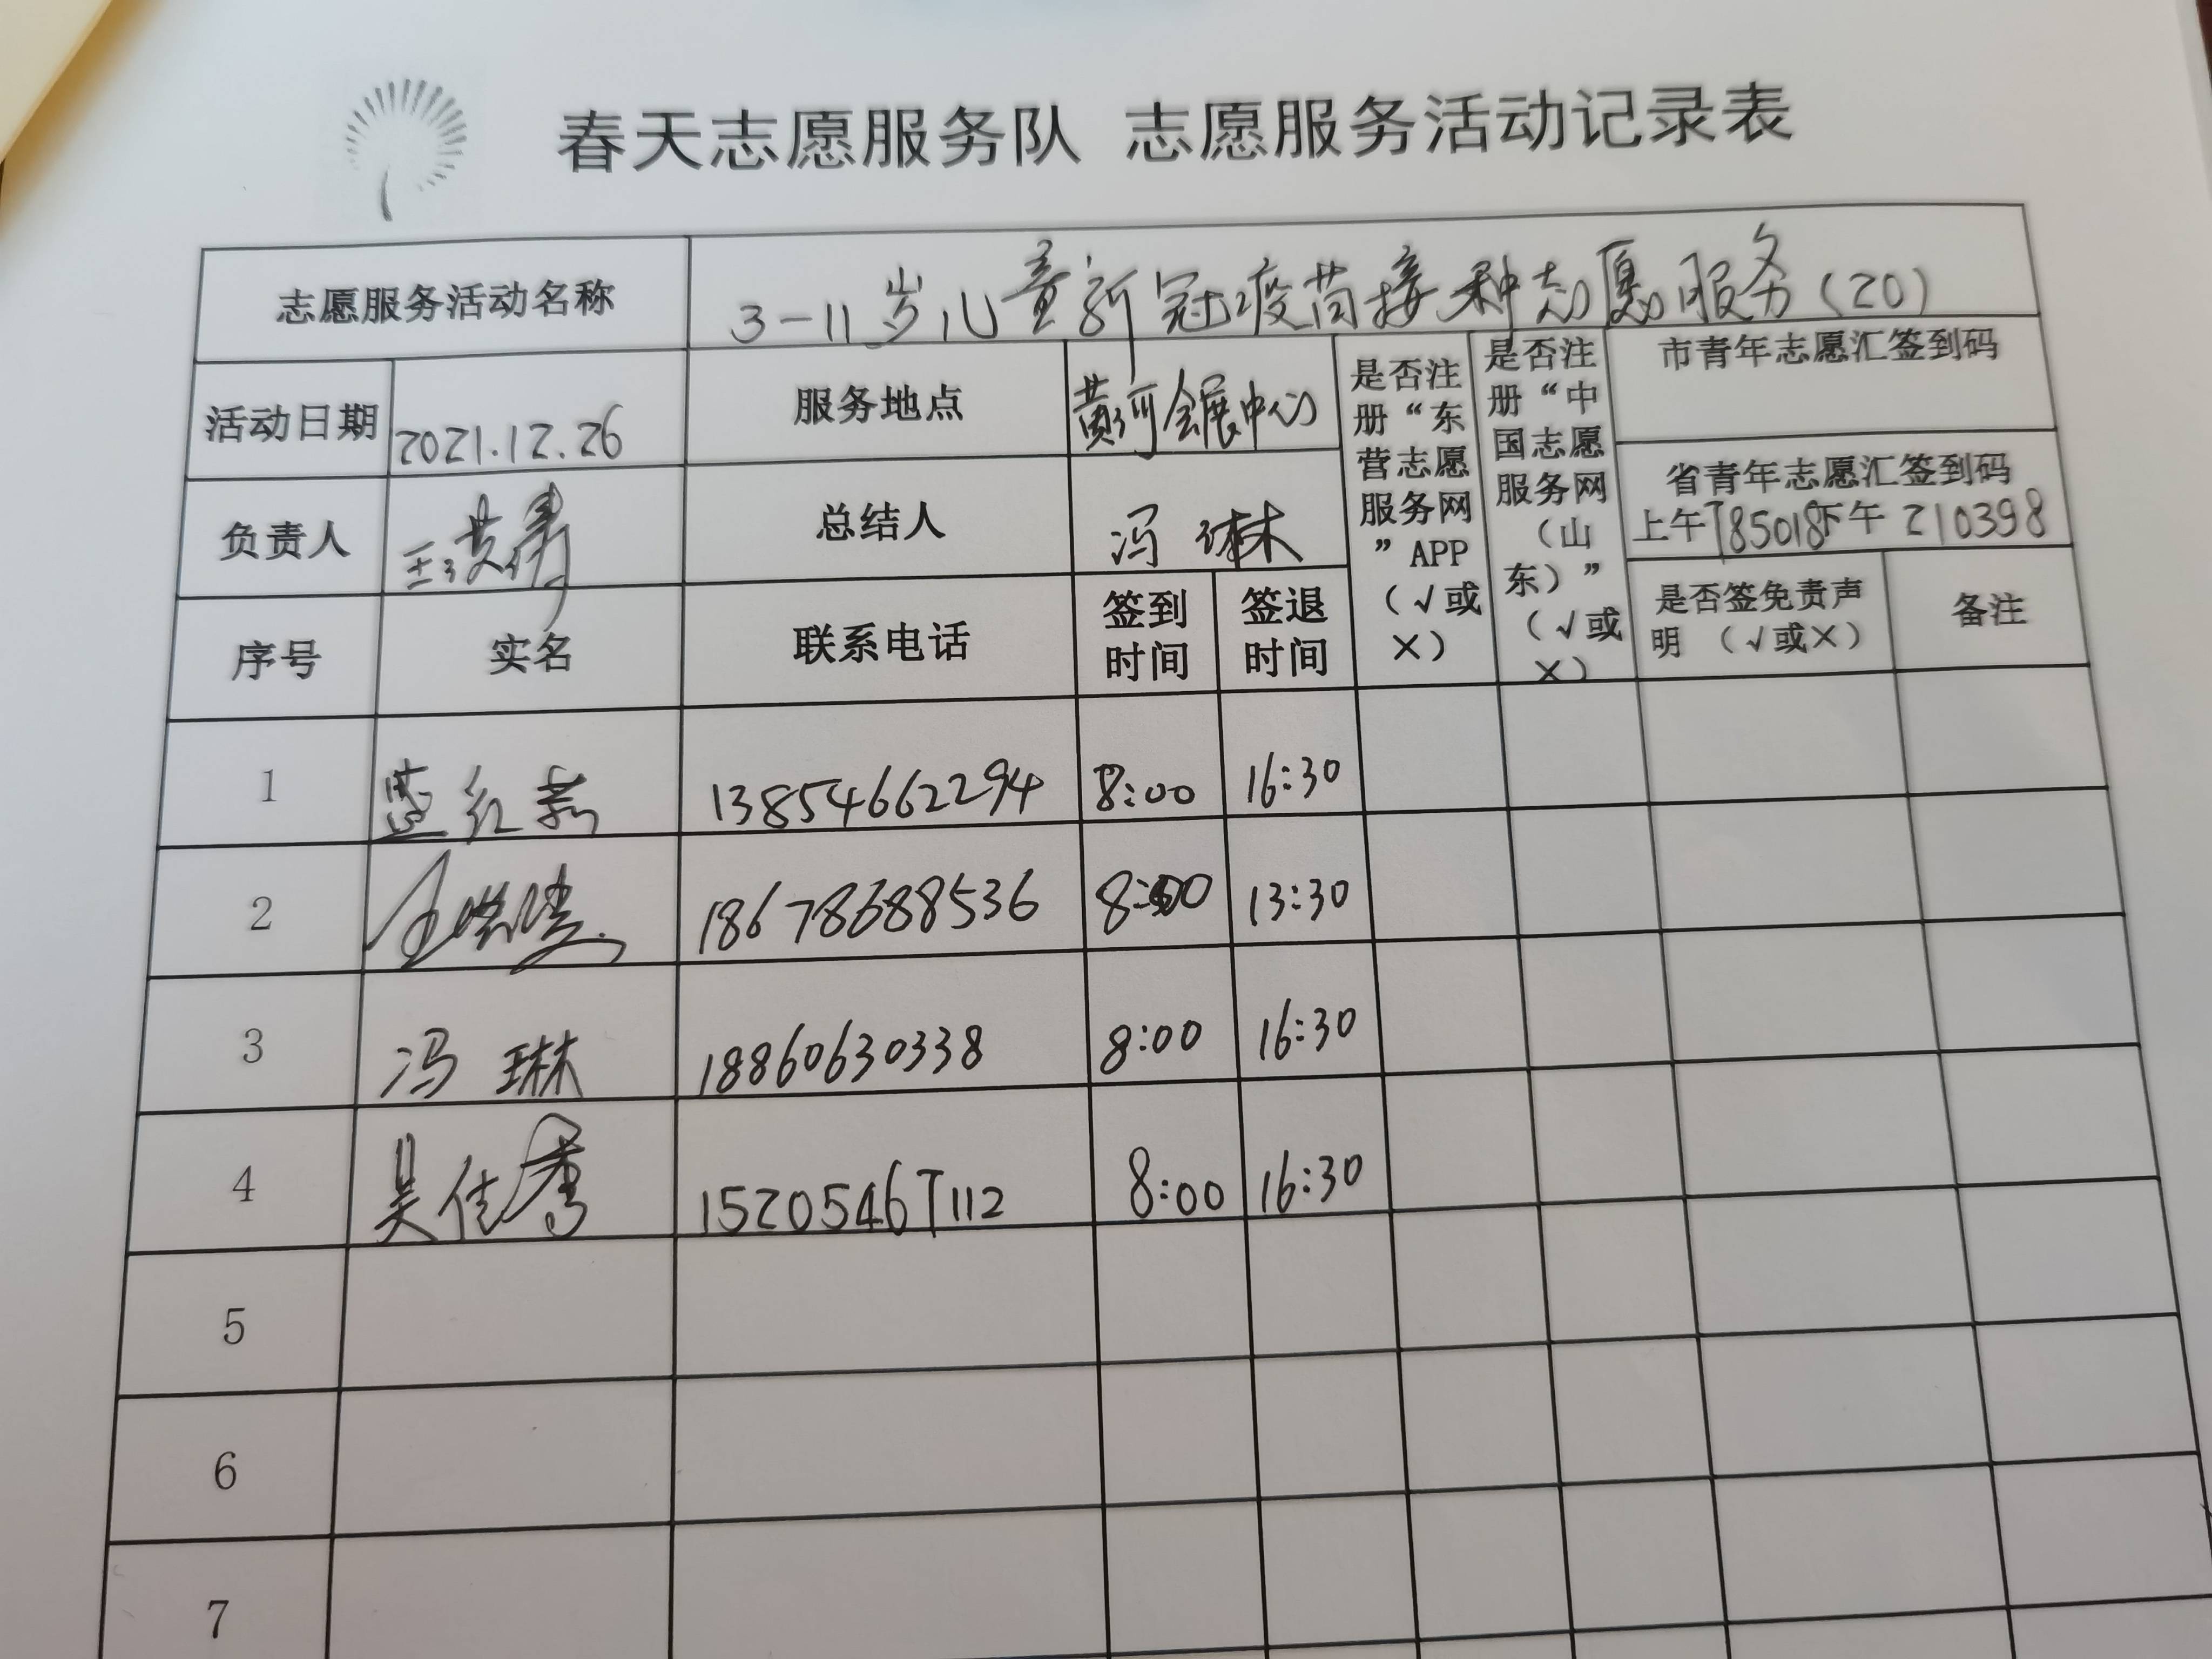 春天志愿服务队 志愿服务活动记录表
志愿服务活动名称 3-11岁儿童新冠疫苗接种志愿服务(20)
活动日期 2021.12.26 服务地点 黄河会展中心
是否注册“东营志愿服务网”APP(√或×)
是否注册“中国志愿服务网(山东)”(√或×)
市青年志愿汇签到码
省青年志愿汇签到码
上午785018下午 210398
负责人 总结人 冯琳
序号 实名 联系电话 签到时间 签退时间 是否签免责声明 (√或×) 备注
1 蓝红燕 13854662294 8:00 16:30
2 18678688536 8:00 13:30
3 冯琳 18860630338 8:00 16:30
4 吴佳秀 15205467112 8:00 16:30
5
6
7